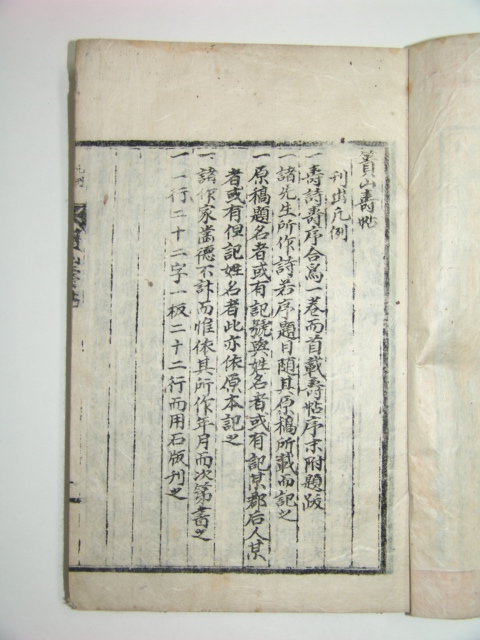 蕢山壽帖
刊出凡例
一壽詩壽序合爲一卷而首載壽帖序末附題跋
一諸先生所作詩若序題目随其原稿所載而記之
一原稿題名者或有記號與姓名者或有記某郡后人某
者或有但記姓名者此亦依原本記之
一諸作家當德不計而惟依其所作年月而次第書之
一一行二十二字一板二十二行而用石版刊之